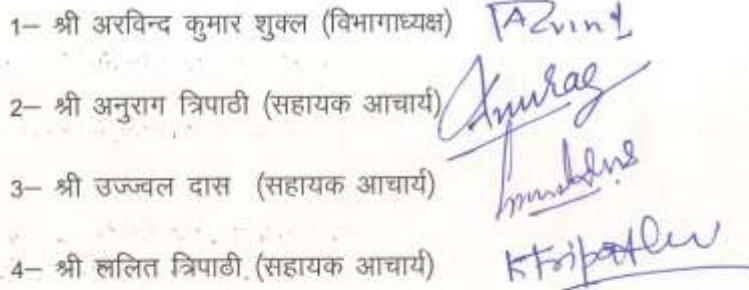 1– श्री अरविन्द कुमार शुक्ल (विभागाध्यक्ष) Arvind
2– श्री अनुराग त्रिपाठी (सहायक आचार्य) Anurag
3– श्री उज्ज्वल दास (सहायक आचार्य)
4– श्री ललित त्रिपाठी (सहायक आचार्य) Ktripathi